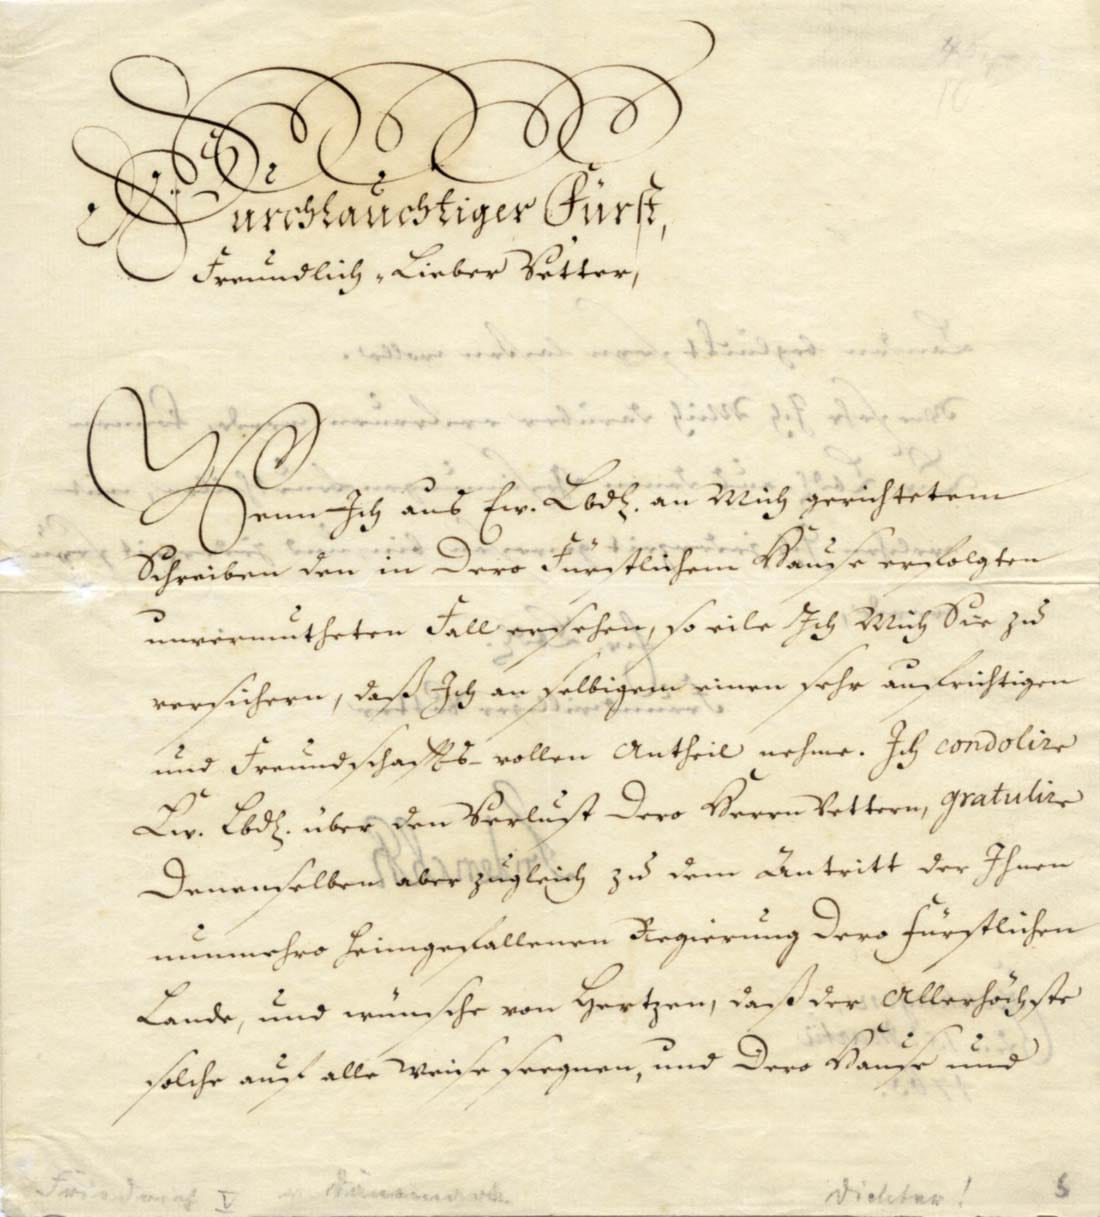 Durchlauchtiger Fürst,
Freundlich-Lieber Vetter,
Wenn Ich aus Ew. Lbd. an Mich gerichtetem
Schreiben den in Dero Fürstlichem Hause erfolgten
unvermutheten Fall ersehen, so eile Ich Mich Sie zu
versichern, daß Ich an selbigem einen sehr aufrichtigen
und Freundschaffts-vollen Antheil nehme. Ich condolire
Ew. Lbd. über den Verlust Dero Herrn Vettern, gratulire
Denenselben aber zugleich zu dem Antritt der Ihnen
nunmehro heimgefallenen Regierung Dero Fürstlichen
Lande, und wünsche von Hertzen, daß der Allerhöchste
solche auf alle Weise seegnen, und Dero Hause und
Friedrich V
Dichter!